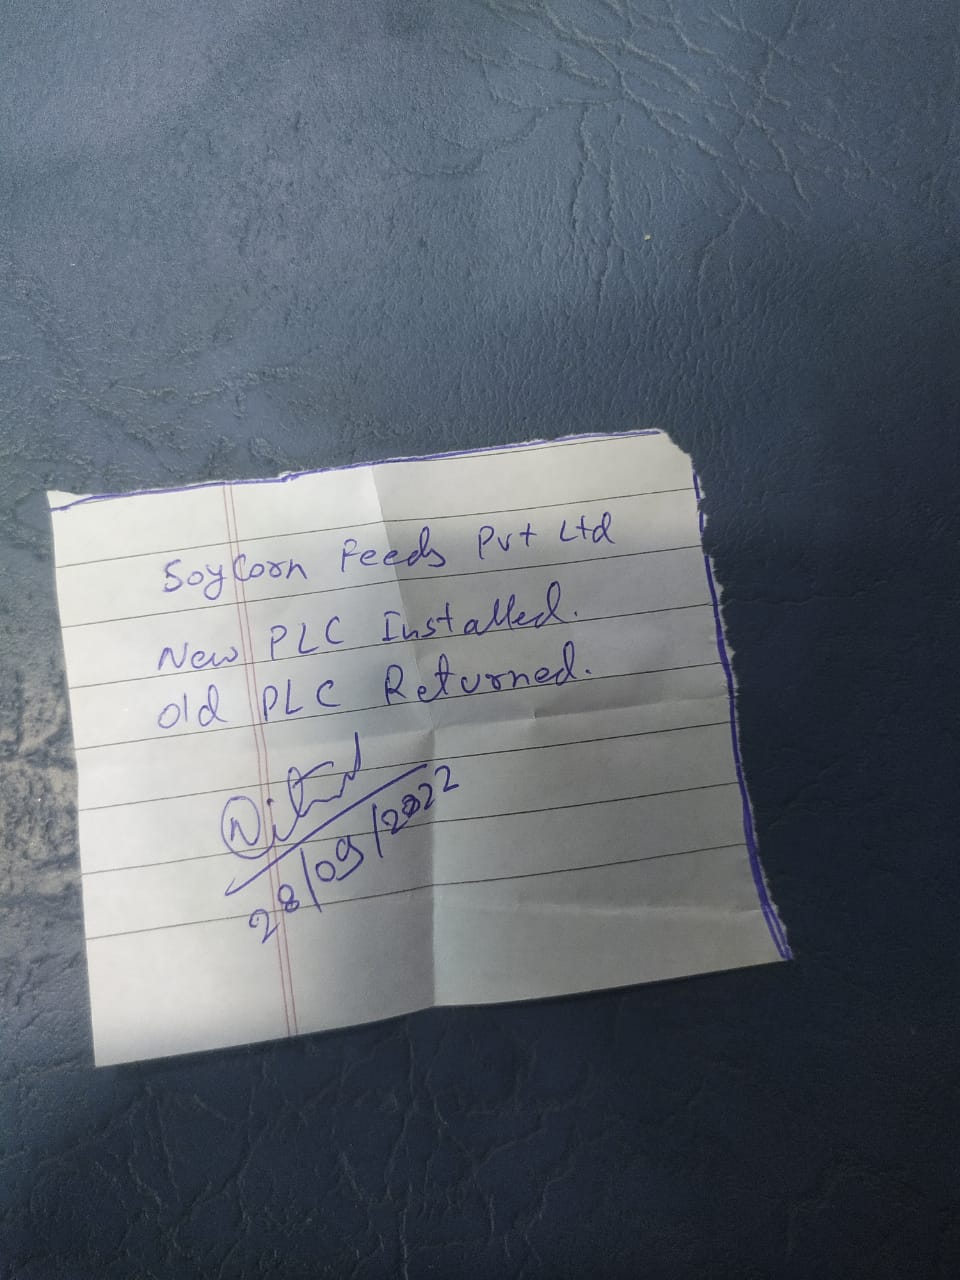 Soycorn Feeds Pvt Ltd
New PLC Installed.
Old PLC Returned.
28/09/2022